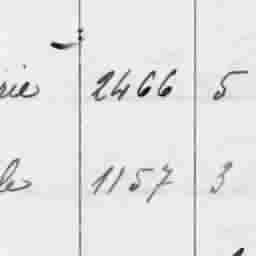 rie 2466 5
le 1157 3